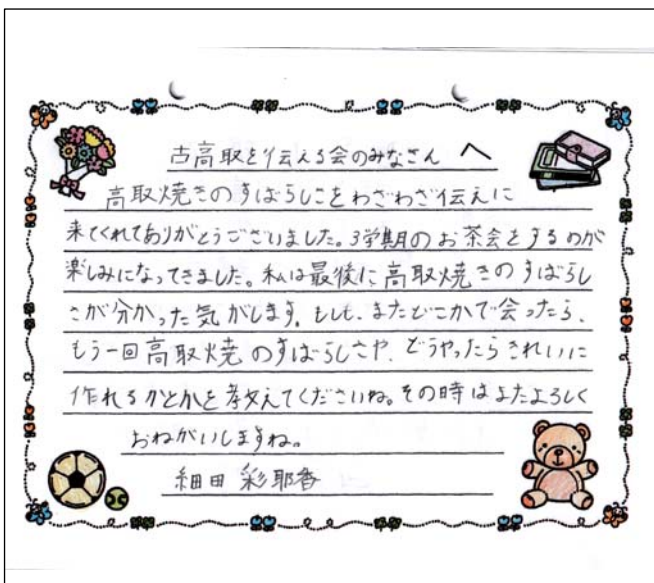 古高取を伝える会のみなさん へ
高取焼きのすばらしさをわざわざ伝えに
来てくれてありがとうございました。3学期のお茶会をするのが
楽しみになってきました。私は最後に高取焼きのすばらし
さが分かった気がします。もしも、またどこかで会ったら、
もう一回高取焼のすばらしさや、どうやったらきれいに
作れるかとかを教えてくださいね。その時はまたよろしく
おねがいしますね。
細田 彩耶香